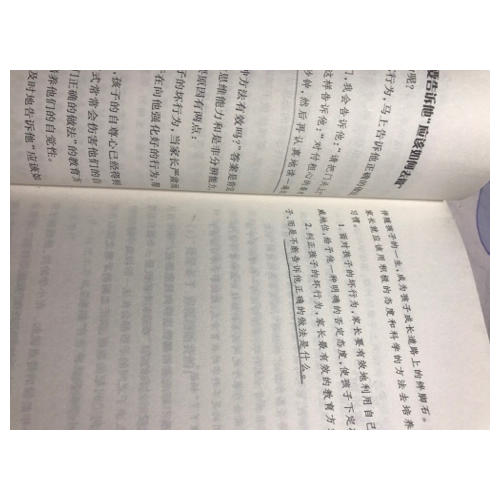 要告诉他“应该如何去做
呢?
行为,马上告诉他正确的
们,我会告诉他:“请把门关上
这样告诉他:“对付粗心
秒钟,然后再认真地读一遍
种方法有效吗?”答案是肯定
思维能力和是非分辨能力
原因有两点:
子的坏行为,当家长严肃
在向他强化好的行为,
,孩子的自尊心已经得到
式常常会伤害他们的自
正确的做法”的教育方
养他们的自觉性。
及时地告诉他“应该怎
伴随孩子的一生,成为孩子成长道路上的绊脚石。
家长就应该用积极的态度和科学的方法去培养
习惯。
1. 面对孩子的坏行为,家长要有效地利用自己
威地位,给予他一种明确的否定态度,使孩子下定
2. 纠正孩子的坏行为,家长最有效的教育方
子,而是不断告诉他正确的做法是什么。